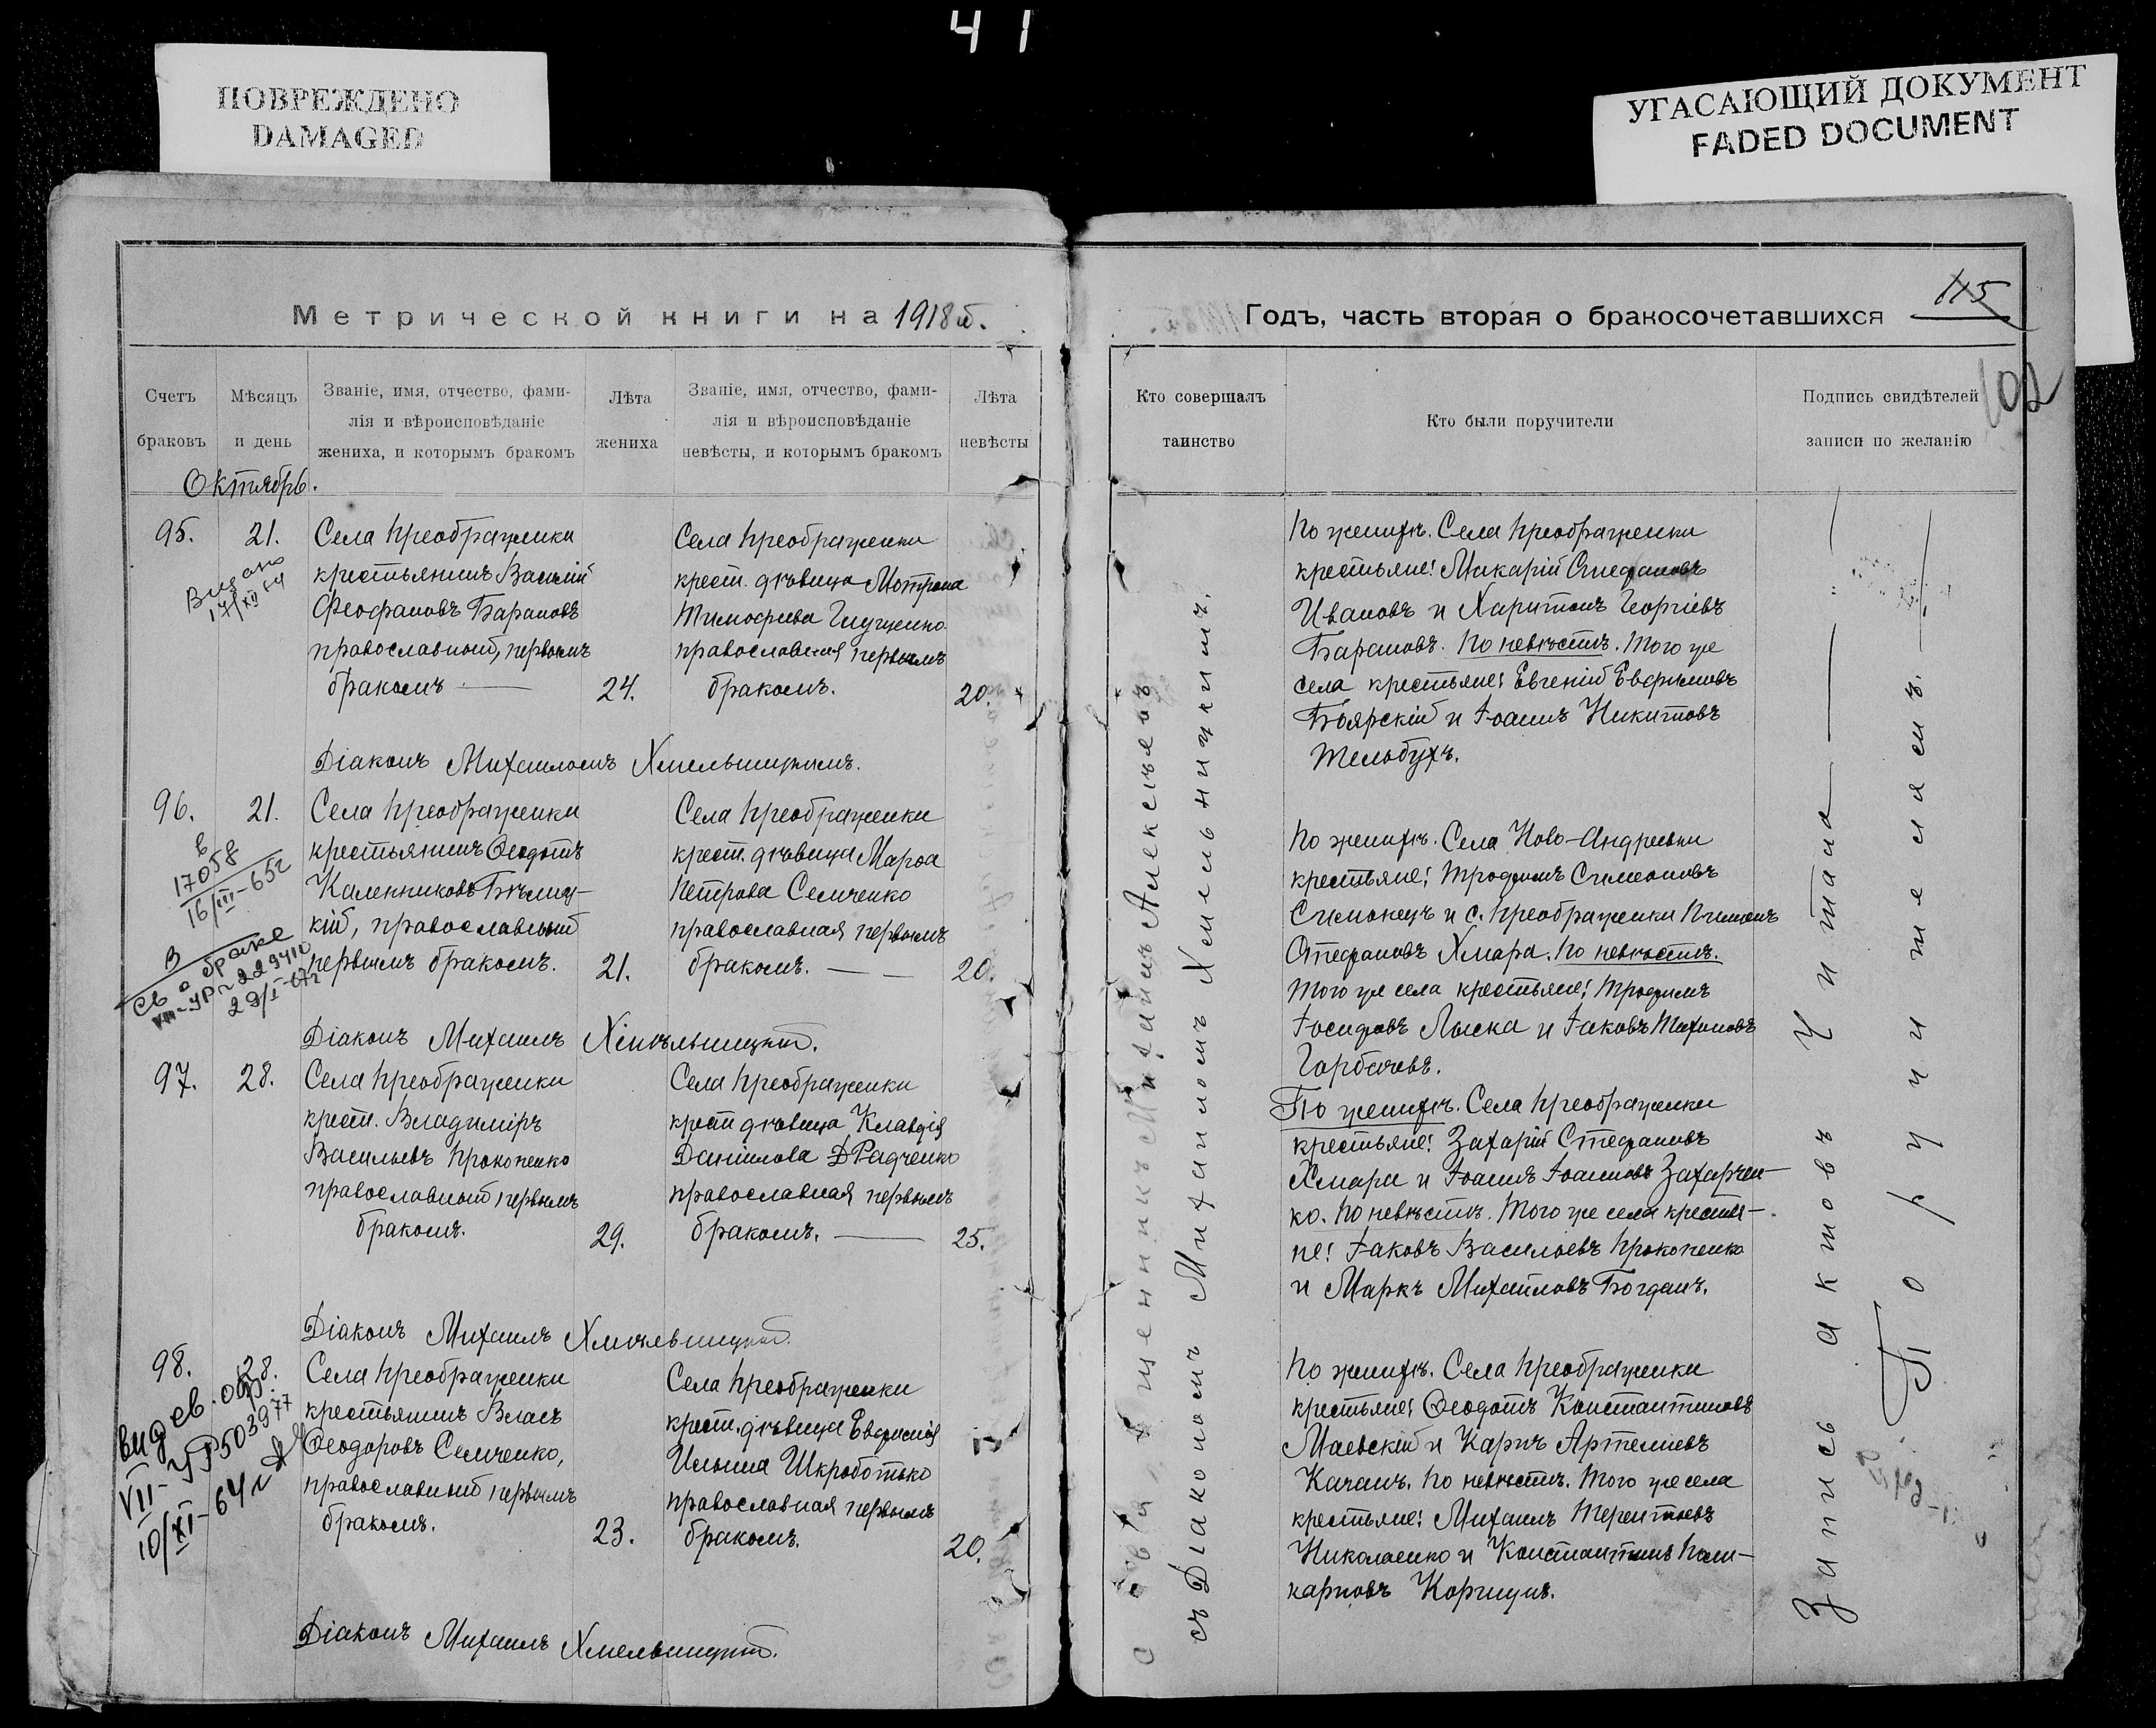 41
ПОВРЕЖДЕНО
DAMAGED
УГАСАЮЩИЙ ДОКУМЕНТ
FADED DOCUMENT
Метрической книги на 1918 г.
Счетъ браковъ
Мѣсяцъ и день
Званіе, имя, отчество, фами-
лія и вѣроисповѣданіе
жениха, и которымъ бракомъ
Лѣта жениха
Званіе, имя, отчество, фами-
лія и вѣроисповѣданіе
невѣсты, и которымъ бракомъ
Лѣта невѣсты
Октябрь.
95.
21.
Видано
17/XII 54
Села Преображенки
крестьянинъ Василій
Феофановъ Барановъ
православный, первымъ
бракомъ —
24.
Села Преображенки
крест. дѣвица Мотрона
Тимофеева Глущенко
православная первымъ
бракомъ.
20.
Діаконъ Михаиломъ Хмельницкимъ.
96.
21.
в
17058
16/III-652
В
св о браке
22/I-672
Села Преображенки
крестьянинъ Ѳеодотъ
Каленниковъ Бѣлиц-
кій, православный
первымъ бракомъ.
21.
Села Преображенки
крест. дѣвица Марѳа
Петрова Семченко
православная первымъ
бракомъ. — —
20.
Діаконъ Михаилъ Хмельницкій.
97.
28.
Села Преображенки
крест. Владиміръ
Васильевъ Прокопенко
православный первымъ
бракомъ.
29.
Села Преображенки
крест дѣвица Клавдія
Даніилова Радченко
православная первымъ
бракомъ. —
25.
Діаконъ Михаилъ Хмельницкій.
98.
28.
вид св. обр.
VII-УР 503977
10/XI-64 г
Села Преображенки
крестьянинъ Власъ
Ѳеодоровъ Семченко,
православный первымъ
бракомъ.
23.
Села Преображенки
крест. дѣвица Евфимія
Ильина Шкроботько
православная первымъ
бракомъ.
20.
Діаконъ Михаилъ Хмельницкій.
Годъ, часть вторая о бракосочетавшихся
115
102
Кто совершалъ таинство
Кто были поручители
Подпись свидѣтелей
записи по желанію
Священникъ Михаилъ Алексѣевъ
съ Діакономъ Михаиломъ Хмельницкимъ.
По женихѣ. Села Преображенки
крестьяне: Макарій Стефановъ
Ивановъ и Харитонъ Георгіевъ
Барановъ. По невѣстѣ. Того же
села крестьяне: Евгеній Евфимовъ
Боярскій и Іоаннъ Никитовъ
Тельбухъ.
По женихѣ. Села Ново-Андреевки
крестьяне: Трофимъ Симеоновъ
Симонецъ и с. Преображенки Пименъ
Стефановъ Хмара. По невѣстѣ.
Того же села крестьяне: Трофимъ
Іосифовъ Лыска и Іаковъ Тихоновъ
Горбачевъ.
По женихѣ. Села Преображенки
крестьяне: Захарій Стефановъ
Хмара и Іоаннъ Іоанновъ Захарчен-
ко. По невѣстѣ. Того же села крестья-
не: Іаковъ Васильевъ Прокопенко
и Маркъ Михайловъ Богданъ.
По женихѣ. Села Преображенки
крестьяне: Ѳеодотъ Константиновъ
Маевскій и Карпъ Артемиевъ
Качанъ. По невѣстѣ. Того же села
крестьяне: Михаилъ Терентіевъ
Николаенко и Константинъ Поли-
карповъ Коршунъ.
Запись актовъ читана —
Поручителемъ. —